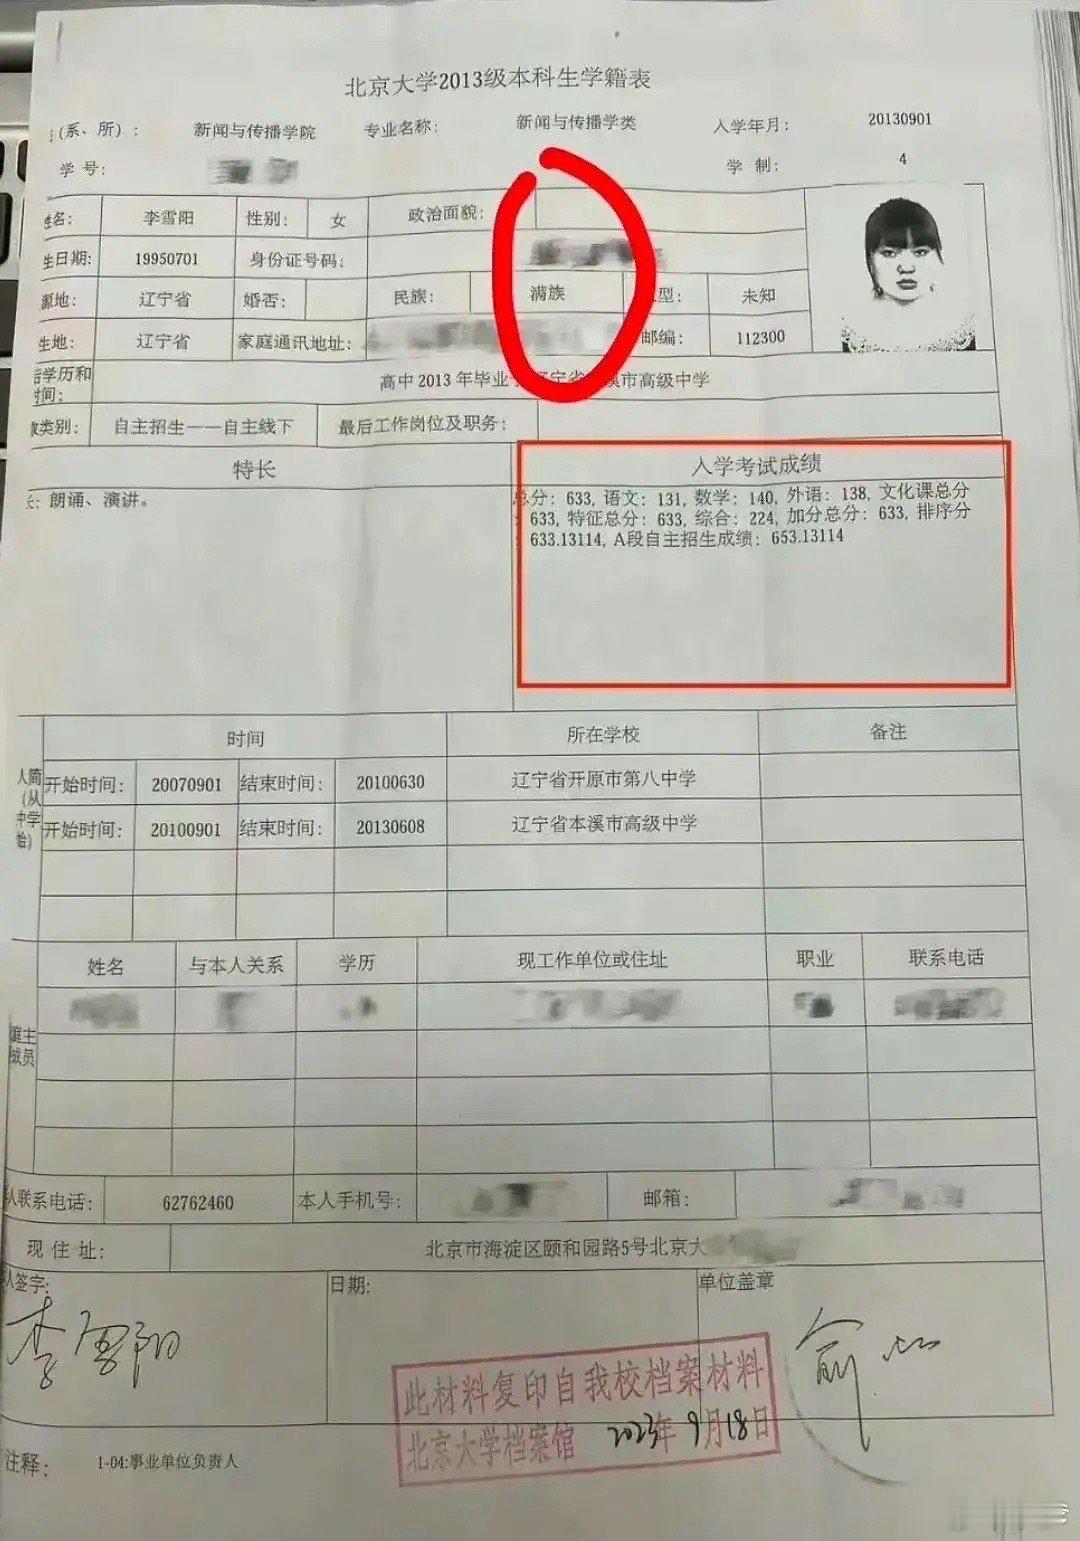 北京大学2013级本科生学籍表
(系、所): 新闻与传播学院 专业名称: 新闻与传播学类 入学年月: 20130901
学 号: 学 制: 4
姓名: 李雪阳 性别: 女 政治面貌:
生日期: 19950701 身份证号码:
源地: 辽宁省 婚否: 民族: 满族 型: 未知
生地: 辽宁省 家庭通讯地址: 邮编: 112300
学历和
时间: 高中 2013 年毕业 辽宁省 溪市高级中学
类别: 自主招生——自主线下 最后工作岗位及职务:
特长 入学考试成绩
长: 朗诵、演讲。
总分: 633, 语文: 131, 数学: 140, 外语: 138, 文化课总分
: 633, 特征总分: 633, 综合: 224, 加分总分: 633, 排序分
: 633.13114, A段自主招生成绩: 653.13114
时间 所在学校 备注
人简
(从
中学
始)
开始时间: 20070901 结束时间: 20100630 辽宁省开原市第八中学
开始时间: 20100901 结束时间: 20130608 辽宁省本溪市高级中学
姓名 与本人关系 学历 现工作单位或住址 职业 联系电话
庭主
成员
人联系电话: 62762460 本人手机号: 邮箱:
现 住 址: 北京市海淀区颐和园路5号北京大
人签字: 日期: 单位盖章
李雪阳
此材料复印自我校档案材料
北京大学档案馆 2023年9月18日
注释: 1-04:事业单位负责人